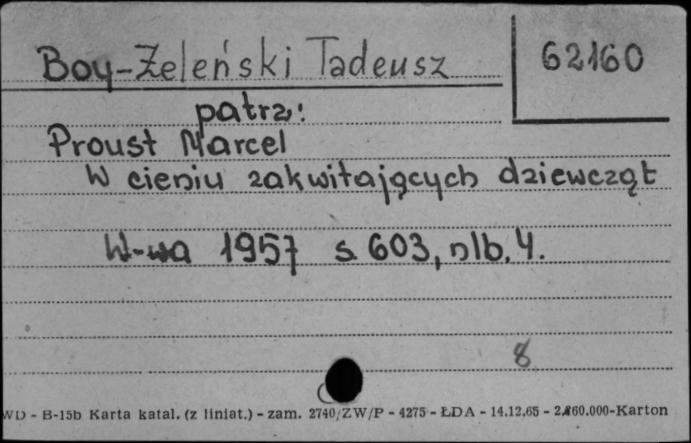 Boy-Żeleński Tadeusz 62160
patrz:
Proust Marcel
W cieniu zakwitających dziewcząt
W-wa 1957 s. 603, nlb. 4.
8
WD - B-15b Karta katal. (z liniat.) - zam. 2740/ZW/P - 4275 - ŁDA - 14.12.65 - 2.860.000-Karton